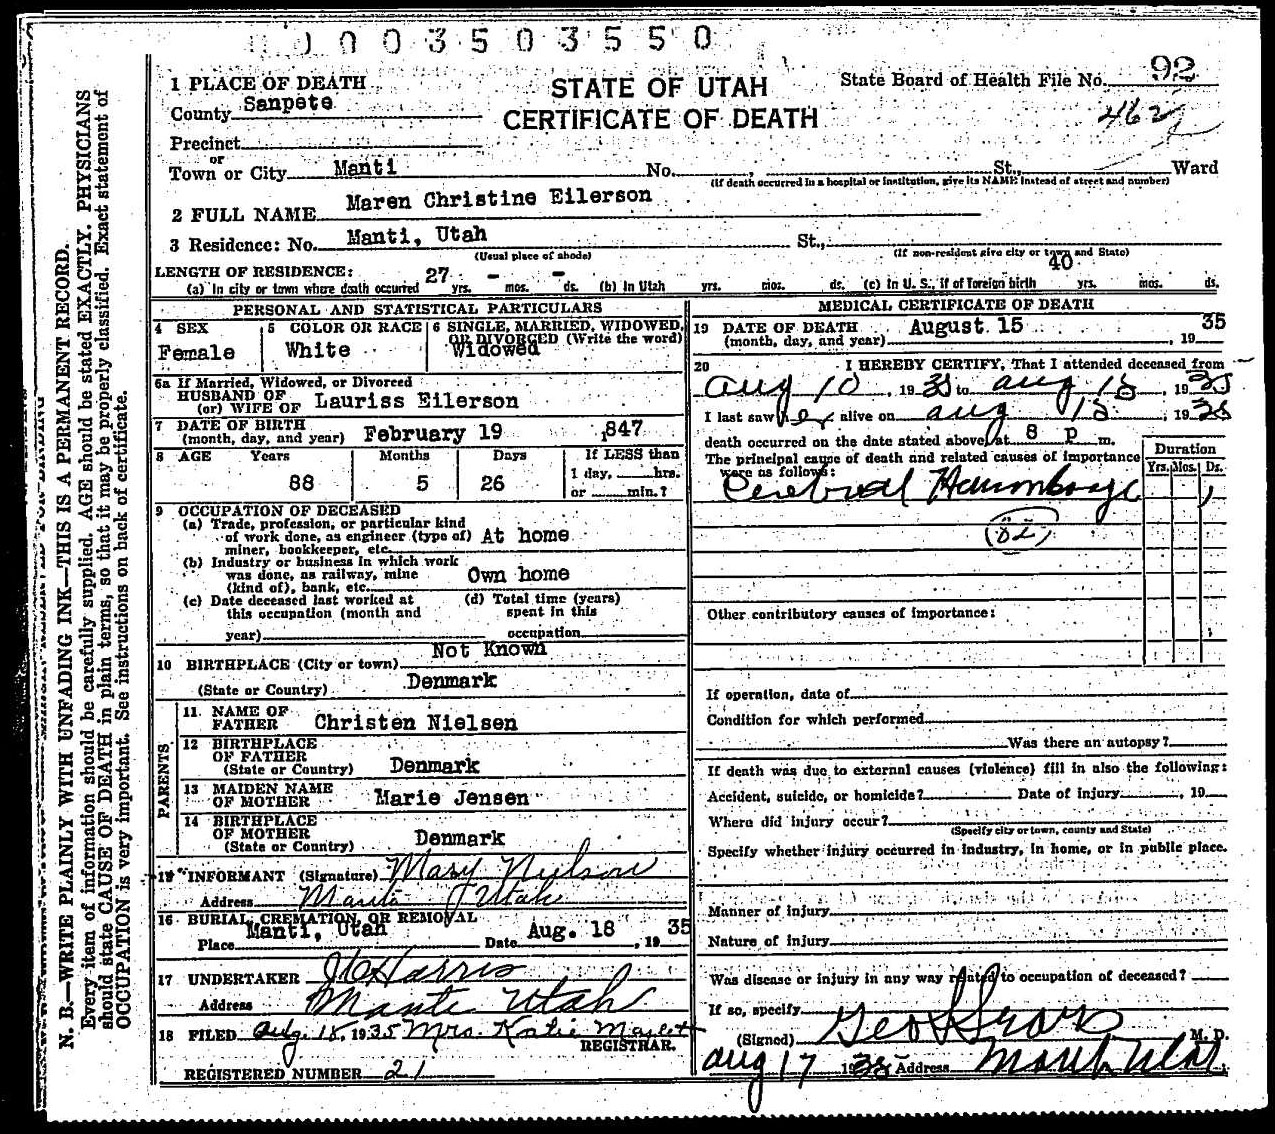 0003503550
1 PLACE OF DEATH
STATE OF UTAH
CERTIFICATE OF DEATH
State Board of Health File No. 92
462
County Sanpete
Precinct
or
Town or City Manti No. , St., Ward
(If death occurred in a hospital or institution, give its NAME instead of street and number)
2 FULL NAME Maren Christine Eilerson
3 Residence: No. Manti, Utah St.,
(Usual place of abode) (If non-resident give city or town and State)
LENGTH OF RESIDENCE:
(a) In city or town where death occurred 27 yrs. - mos. - ds. (b) In Utah yrs. mos. ds. (c) In U. S., if of foreign birth 40 yrs. mos. ds.
PERSONAL AND STATISTICAL PARTICULARS
4 SEX
Female
5 COLOR OR RACE
White
6 SINGLE, MARRIED, WIDOWED,
OR DIVORCED (Write the word)
Widowed
6a If Married, Widowed, or Divorced
HUSBAND OF
(or) WIFE OF Lauriss Eilerson
7 DATE OF BIRTH
(month, day, and year) February 19 ,847
8 AGE Years Months Days If LESS than
1 day, hrs.
88 5 26 or min.?
9 OCCUPATION OF DECEASED
(a) Trade, profession, or particular kind
of work done, as engineer (type of) At home
miner, bookkeeper, etc.
(b) Industry or business in which work
was done, as railway, mine Own home
(kind of), bank, etc.
(c) Date deceased last worked at (d) Total time (years)
this occupation (month and spent in this
year) occupation
10 BIRTHPLACE (City or town) Not Known
(State or Country) Denmark
PARENTS
11. NAME OF
FATHER Christen Nielsen
12 BIRTHPLACE
OF FATHER
(State or Country) Denmark
13 MAIDEN NAME
OF MOTHER Marie Jensen
14 BIRTHPLACE
OF MOTHER
(State or Country) Denmark
15 INFORMANT (Signature) Mary Neilson
Address Manti Utah
16 BURIAL, CREMATION, OR REMOVAL
Place Manti, Utah Date Aug. 18 , 19 35
17 UNDERTAKER J C Harris
Address Manti Utah
18 FILED Aug. 18, 1935 Mrs. Katie
REGISTRAR.
REGISTERED NUMBER 21
MEDICAL CERTIFICATE OF DEATH
19 DATE OF DEATH
(month, day, and year) August 15 , 19 35
20 I HEREBY CERTIFY, That I attended deceased from
Aug 10 , 1935 to Aug 15 , 1935
I last saw her alive on Aug 15 ; 1935
death occurred on the date stated above, at 8 p m.
The principal cause of death and related causes of importance
were as follows:
Duration
Yrs. Mos. Ds.
Cerebral Haemorrhage 1
(82)
Other contributory causes of importance:
If operation, date of
Condition for which performed
Was there an autopsy?
If death was due to external causes (violence) fill in also the following:
Accident, suicide, or homicide? Date of injury , 19
Where did injury occur?
(Specify city or town, county and State)
Specify whether injury occurred in industry, in home, or in public place.
Manner of injury
Nature of injury
Was disease or injury in any way related to occupation of deceased?
If so, specify
(Signed) Geo L Sears M. D.
Aug 17 1935 Address Manti Utah
N. B.—WRITE PLAINLY WITH UNFADING INK—THIS IS A PERMANENT RECORD.
Every item of information should be carefully supplied. AGE should be stated EXACTLY. PHYSICIANS
should state CAUSE OF DEATH in plain terms, so that it may be properly classified. Exact statement of
OCCUPATION is very important. See instructions on back of certificate.